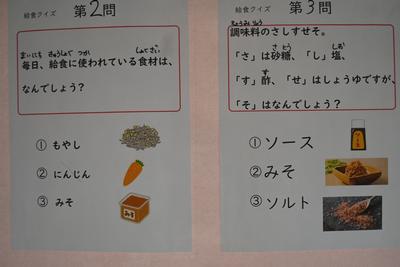 給食クイズ 第2問
まいにち きゅうしょく つか しょくざい
毎日、給食に使われている食材は、
なんでしょう？
① もやし
② にんじん
③ みそ
みそ
給食クイズ 第3問
ちょうみりょう
調味料のさしすせそ。
さとう しお
「さ」は砂糖、「し」塩、
す
「す」酢、「せ」はしょうゆですが、
「そ」はなんでしょう？
①ソース
②みそ
③ソルト